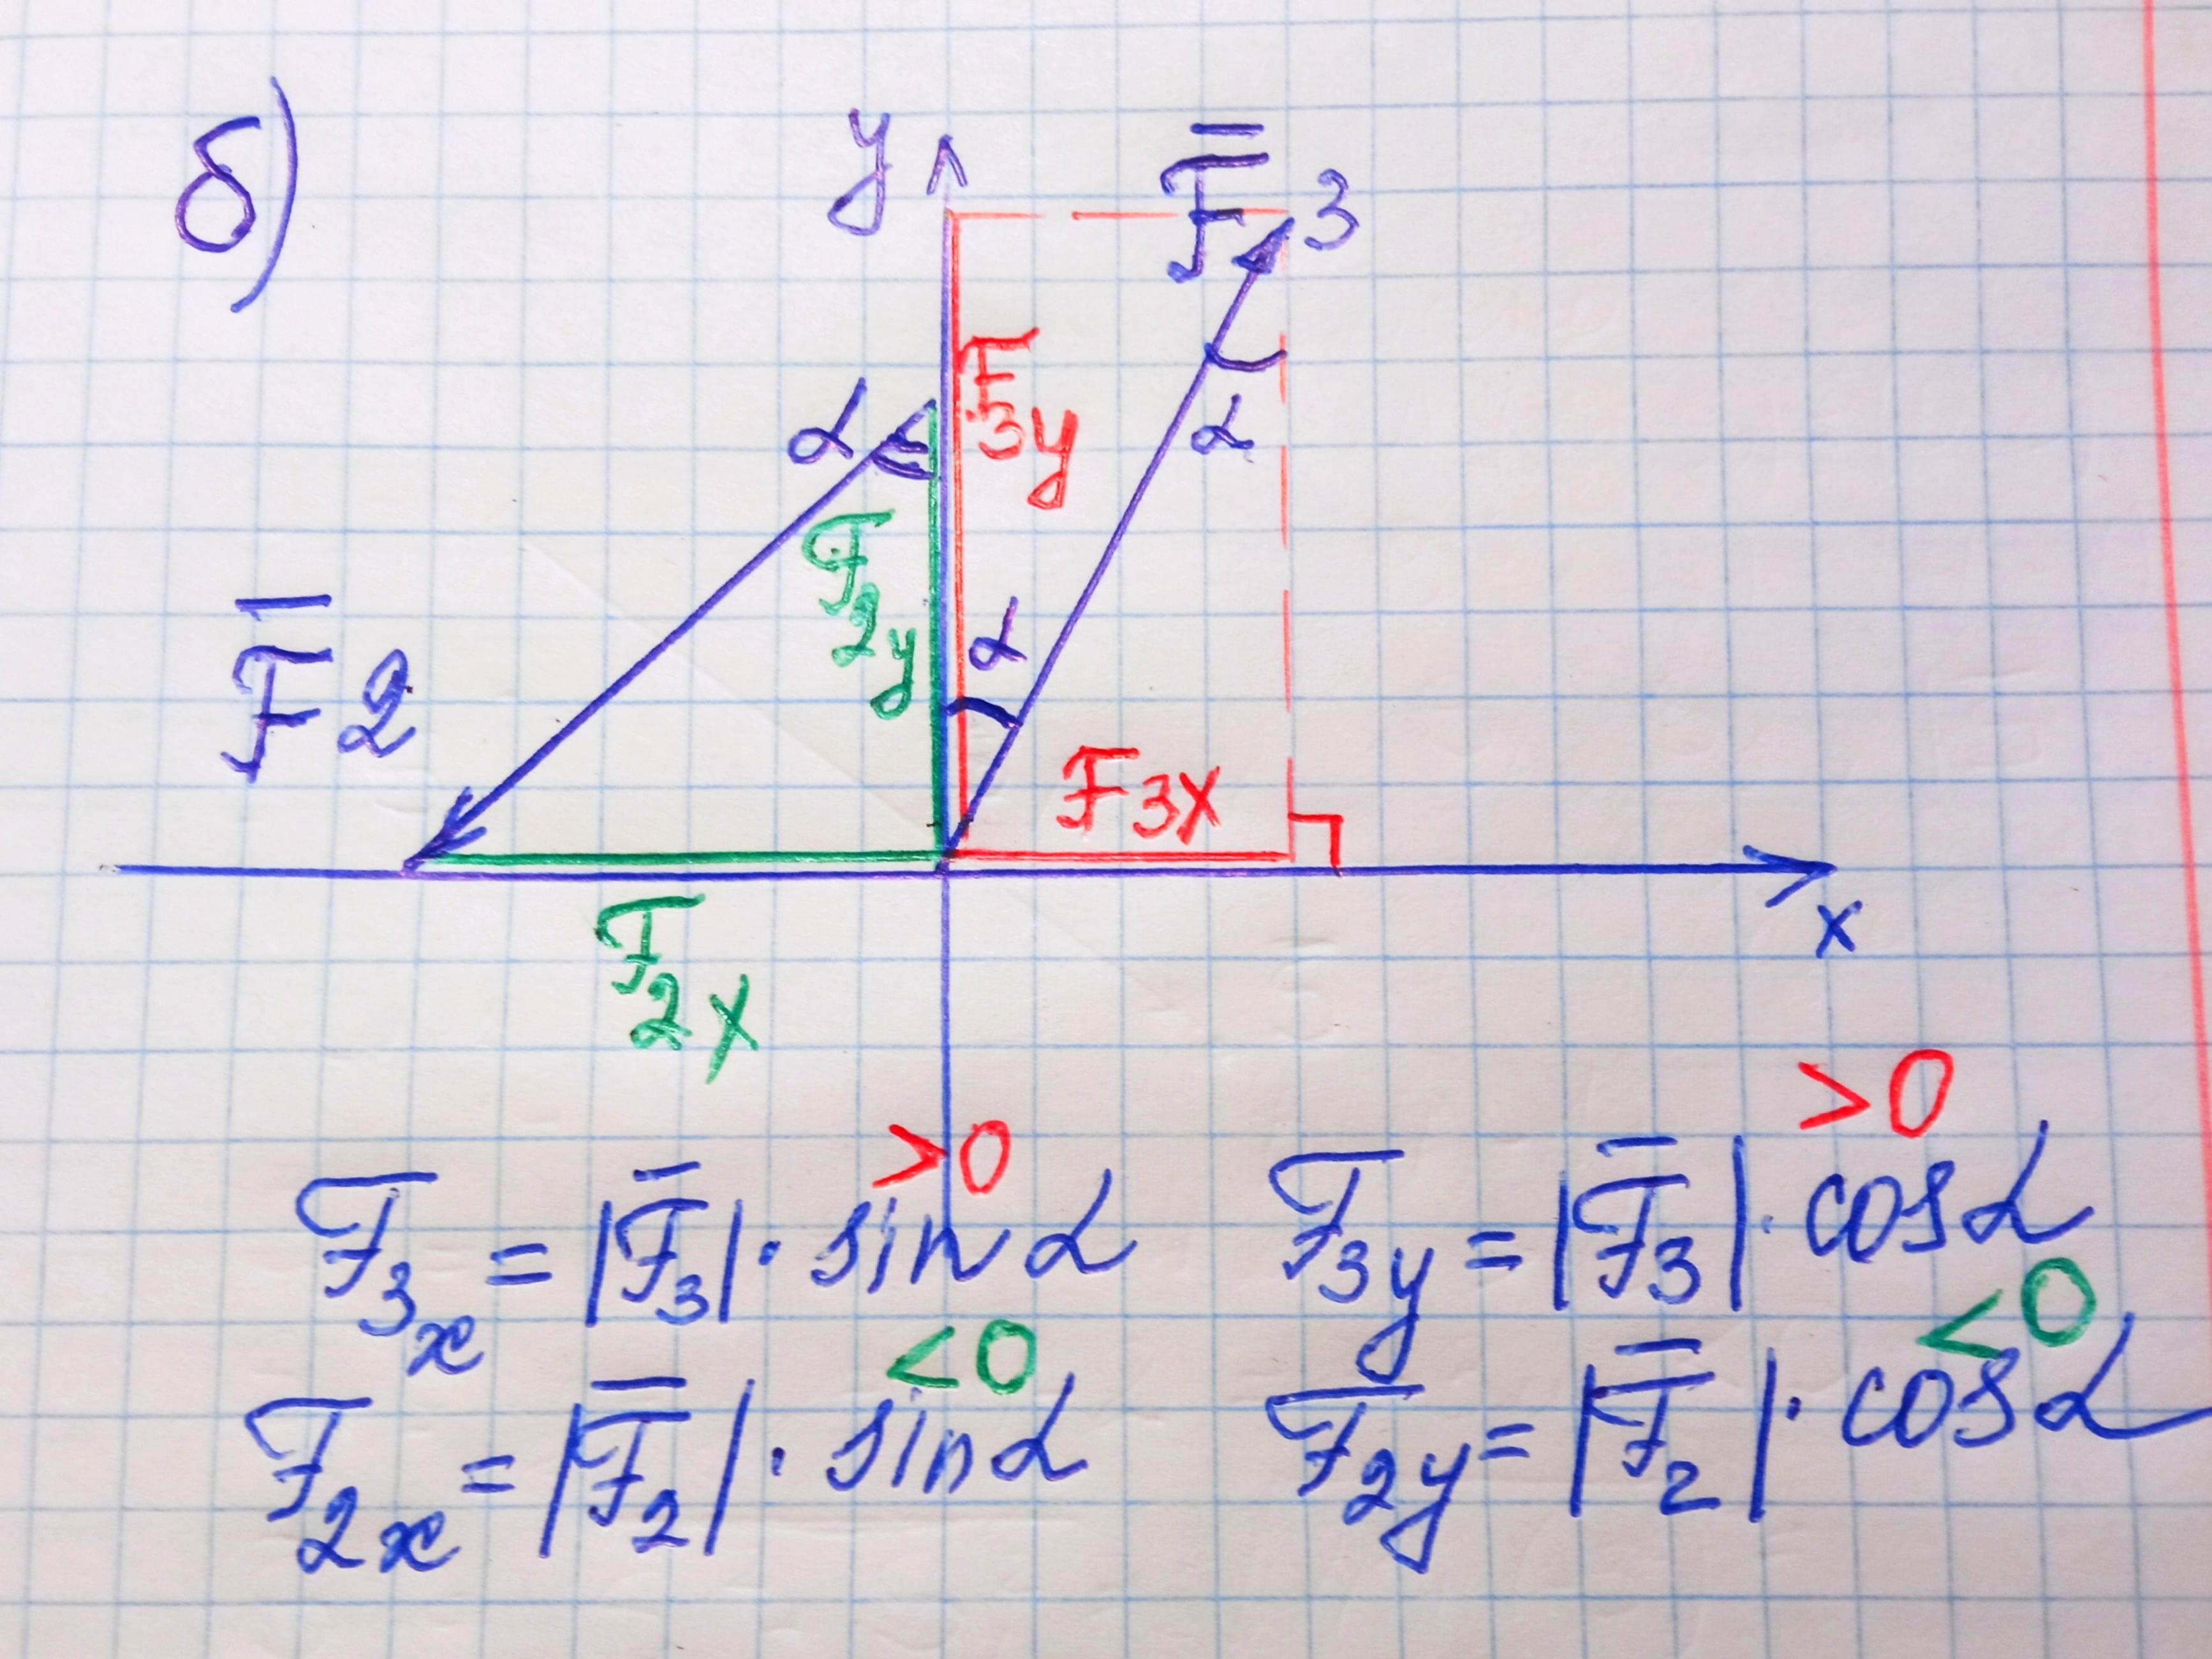 б)
y
F̅3
F3y
α
α
F2y
F̅2
α
F3x
x
F2x
>0 >0
F3x = |F̅3| · sin α F3y = |F̅3| · cos α
<0 <0
F2x = |F̅2| · sin α F2y = |F̅2| · cos α